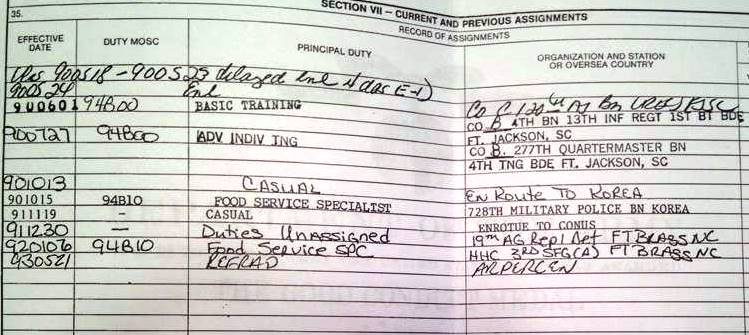 35.
SECTION VII – CURRENT AND PREVIOUS ASSIGNMENTS
RECORD OF ASSIGNMENTS
EFFECTIVE DATE
DUTY MOSC
PRINCIPAL DUTY
ORGANIZATION AND STATION OR OVERSEA COUNTRY
900518 - 900523 delayed enl (E-1)
900524 Enl
900601 94B00 BASIC TRAINING CO B 4TH BN 13TH INF REGT 1ST BT BDE
FT. JACKSON, SC
900727 94B00 ADV INDIV TNG CO B. 277TH QUARTERMASTER BN
4TH TNG BDE FT. JACKSON, SC
901013 CASUAL En Route To KOREA
901015 94B10 FOOD SERVICE SPECIALIST 728TH MILITARY POLICE BN KOREA
911119 – CASUAL ENROTUE TO CONUS
911230 — Duties Unassigned 19TH AG Repl Det FT BRAGG NC
920106 94B10 Food Service SPC HHC 3RD SFG(A) FT BRAGG NC
930521 REFRAD ARPERCEN